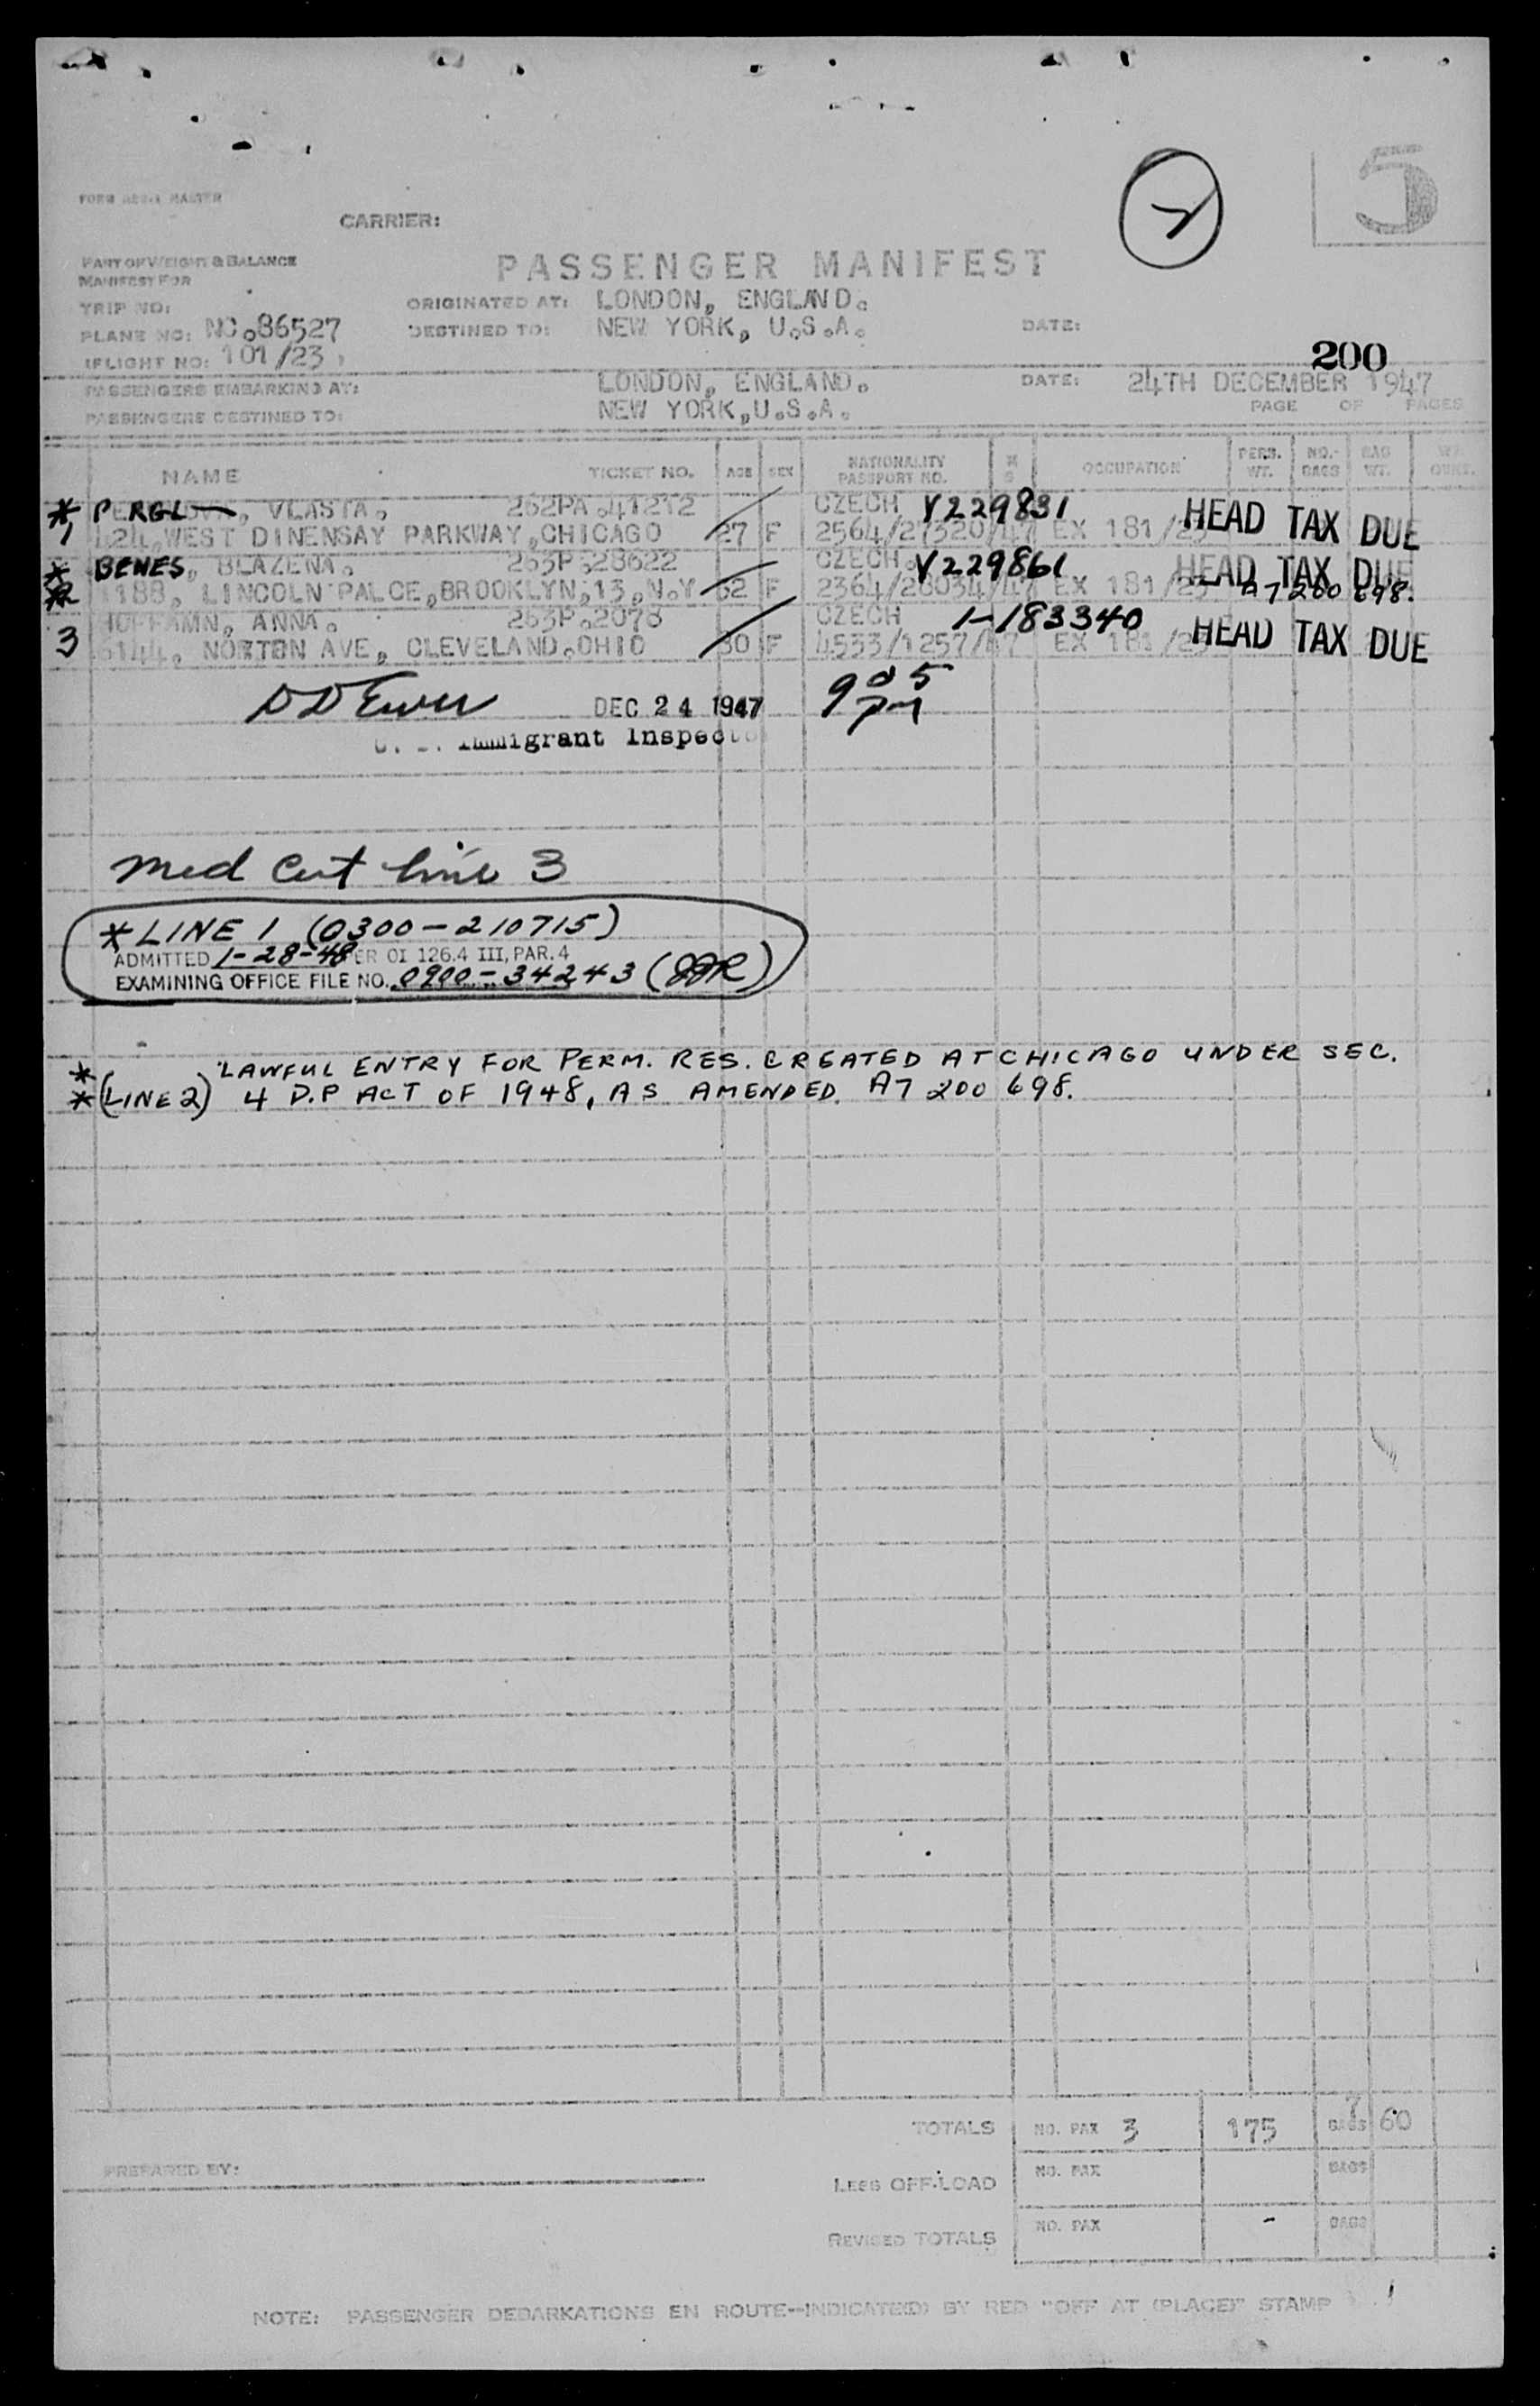 5
2
CARRIER:
PART OF WEIGHT & BALANCE
MANIFEST FOR
PASSENGER MANIFEST
TRIP NO:
ORIGINATED AT: LONDON, ENGLAND.
PLANE NO: NC.86527
DESTINED TO: NEW YORK, U.S.A.
DATE:
FLIGHT NO: 101/23
200
PASSENGERS EMBARKING AT: LONDON, ENGLAND. DATE: 24TH DECEMBER 1947
PASSENGERS DESTINED TO: NEW YORK, U.S.A. PAGE OF PAGES
NAME TICKET NO. AGE SEX NATIONALITY PASSPORT NO. OCCUPATION PERS. WT. NO. BAGS BAG WT.
* PERGL, VLASTA. 262PA.41212 CZECH V229831 HEAD TAX DUE
1 424, WEST DINENSAY PARKWAY, CHICAGO 27 F 2564/27320/47 EX 181/23
* BENES, BLAZENA. 263P.28622 CZECH. V229861 HEAD TAX DUE
*2 1188, LINCOLN PALCE, BROOKLYN, 13, N.Y. 62 F 2364/28034/47 EX 181/23 A7 200 698.
HOFFAMN, ANNA. 263P.2078 CZECH 1-183340 HEAD TAX DUE
3 5144, NORTON AVE, CLEVELAND, OHIO 30 F 4553/1257/47 EX 181/23
DEC 24 1947 9 05 PM
U. S. Immigrant Inspector
Med Cert line 3
* LINE 1 (0300-210715)
ADMITTED 1-28-48 PER OI 126.4 III, PAR. 4
EXAMINING OFFICE FILE NO. 0900-34243 (JJR)
* LAWFUL ENTRY FOR PERM. RES. CREATED AT CHICAGO UNDER SEC.
* (LINE 2) 4 D.P ACT OF 1948, AS AMENDED. A7 200 698.
TOTALS NO. PAX 3 175 7 BAGS 60
PREPARED BY:
LESS OFF-LOAD NO. PAX BAGS
REVISED TOTALS NO. PAX - BAGS
NOTE: PASSENGER DEBARKATIONS EN ROUTE—INDICATE(D) BY RED "OFF AT (PLACE)" STAMP